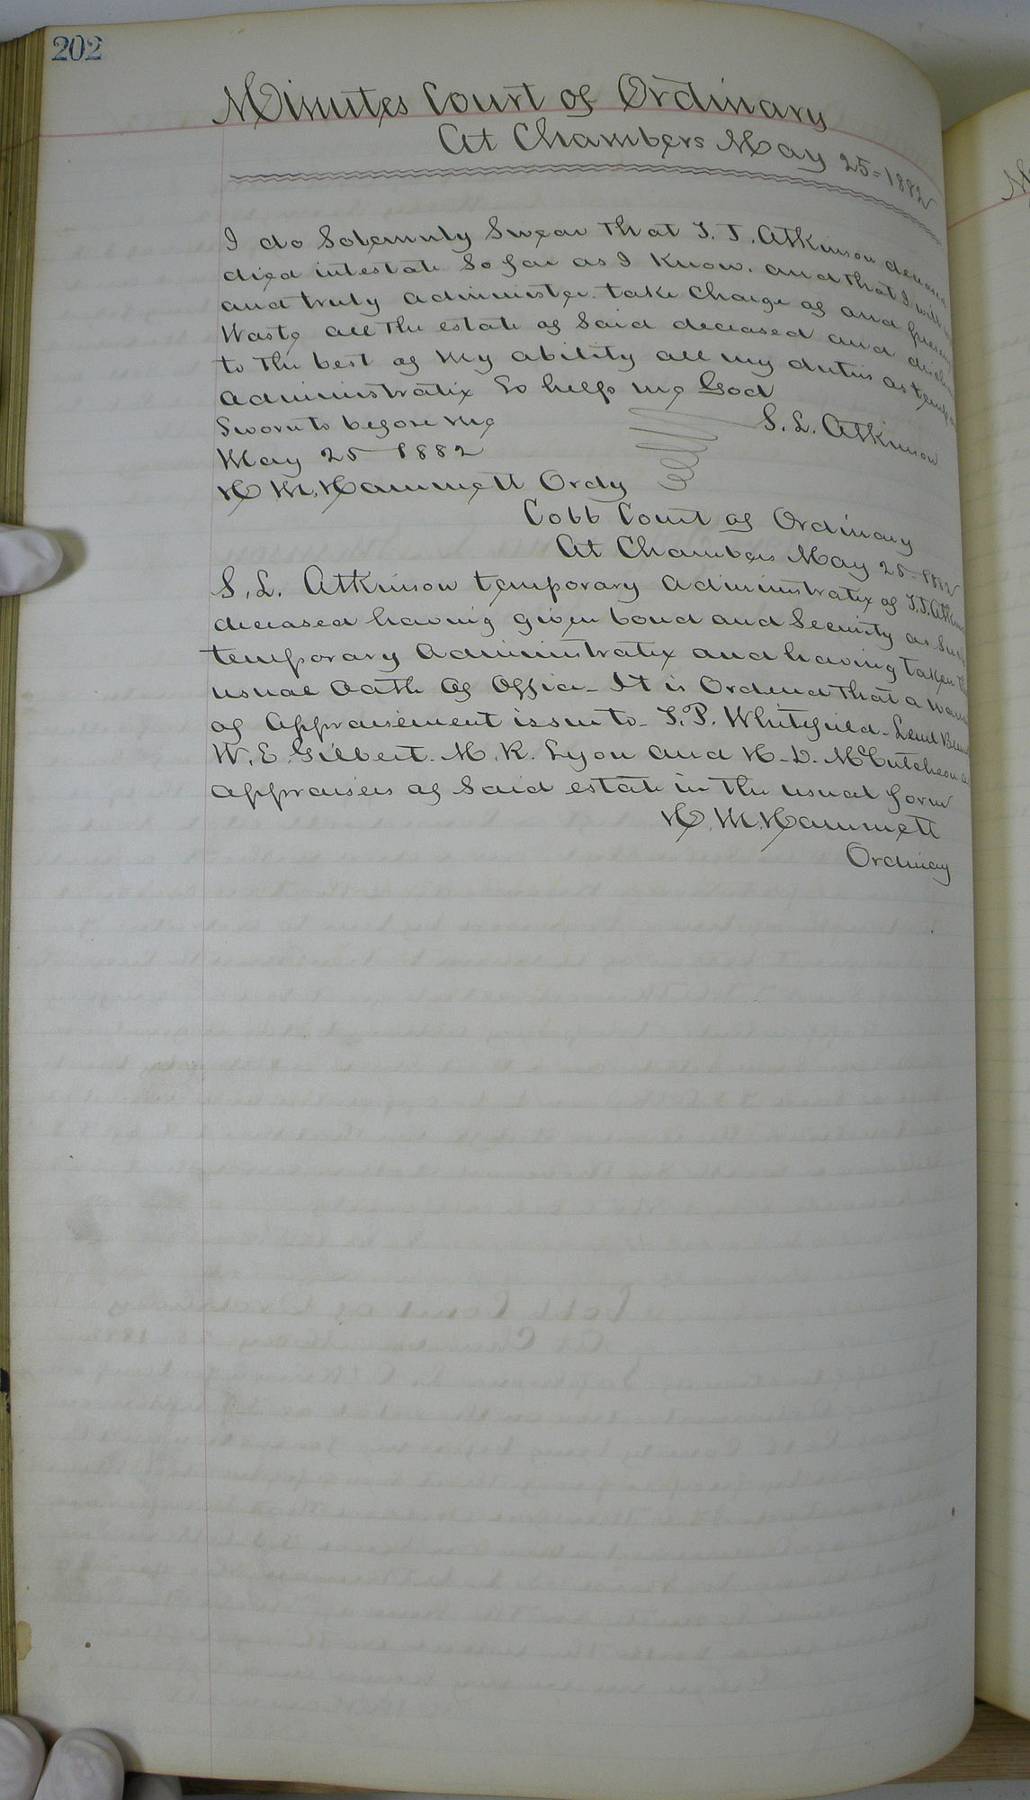 202
Minutes Court of Ordinary
At Chambers May 25=1882
I do Solemnly Swear that T. T. Atkinson deceased
died intestate So far as I Know. and that I will
and truly administer. take Charge of and
Waste all the estate of Said deceased and
to the best of my ability all my duties as
administratix So help me God
S. L. Atkinson
Sworn to before me
May 25 1882
H M. Hammett Ordy
Cobb Court of Ordinary
At Chambers May 25=1882
S. L. Atkinson temporary administratix of T.T.
deceased having given bond and Security as Such
temporary administratix and having taken the
usual oath of office_ It is Ordered that a
of appraisement issue to_ T. P. Whitfield_
W. E. Gilbert. M. R. Lyon and H_D. McCutcheon
appraisers of Said estate in the usual form
H. M. Hammett
Ordinary